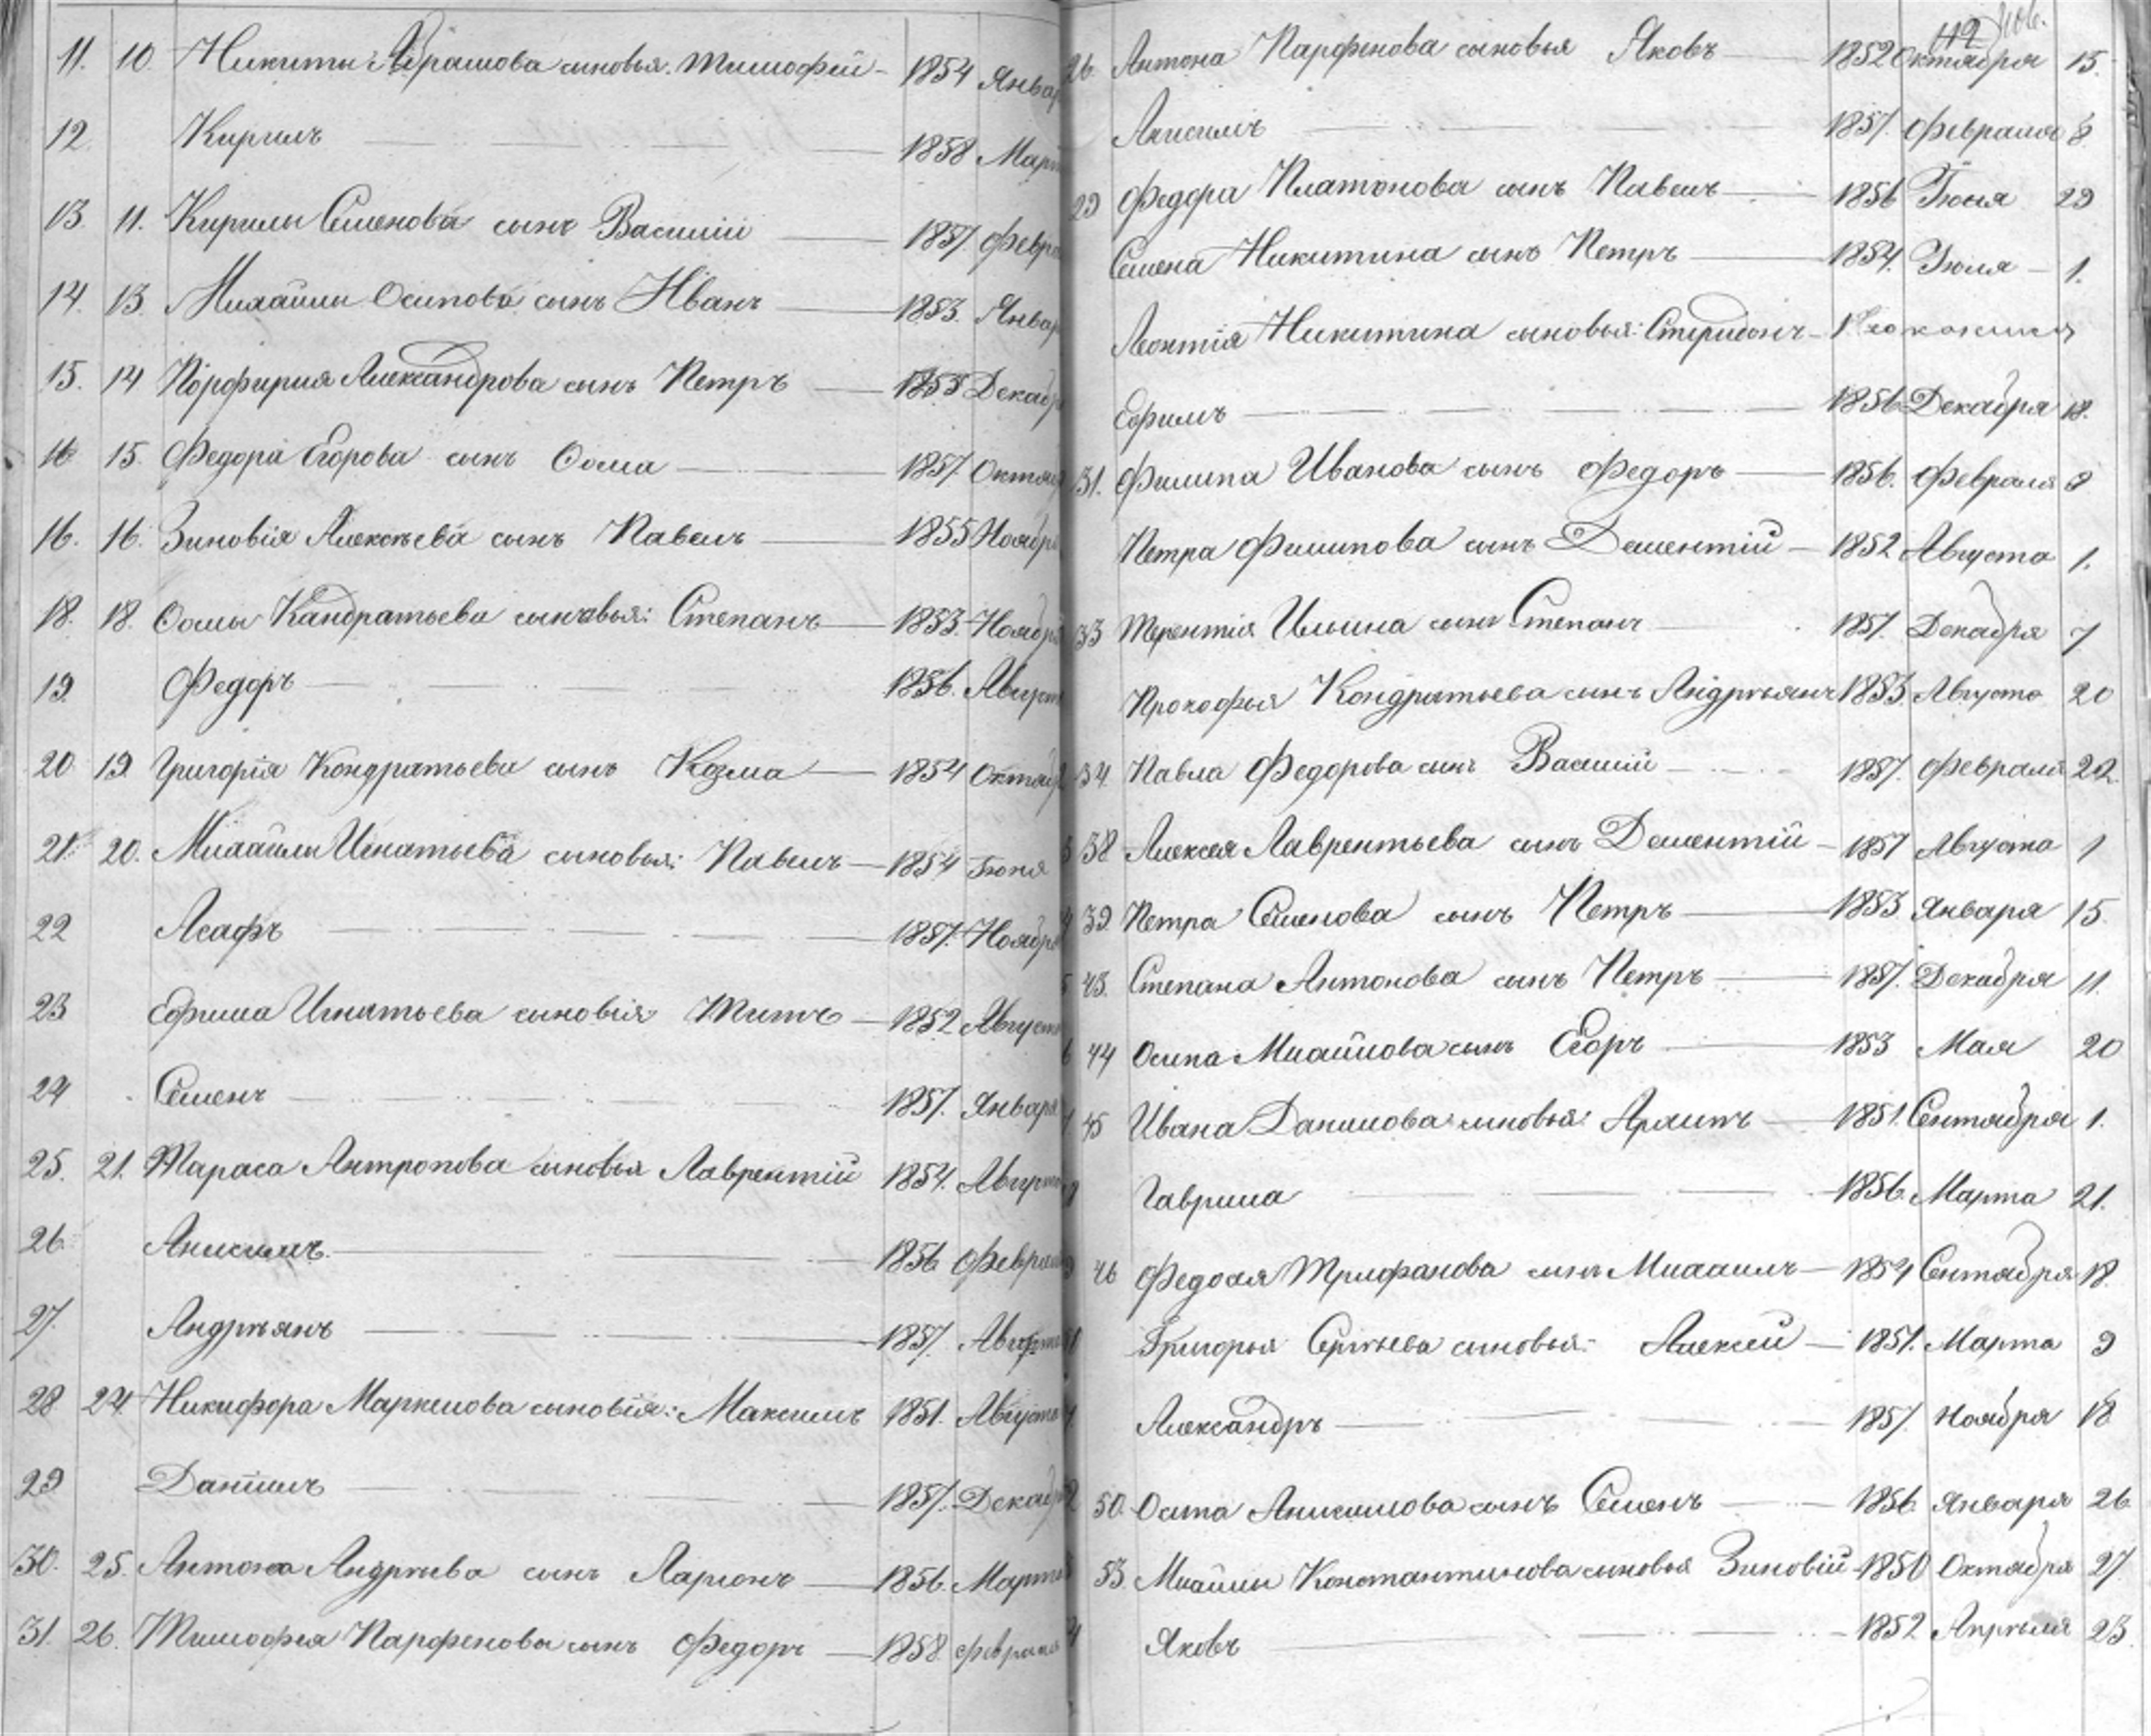 11. 10 Никиты Абрамова сыновья. Тимофей - 1854 Январ
12. Кирилъ 1858 Март
13. 11. Кирилы Семенова сынъ Василий 1857. Февра
14. 13. Михайлы Осипова сынъ Иванъ 1853. Январ
15. 14 Порфирия Александрова сынъ Петръ 1855 Декабр
16 15. Федора Егорова сынъ Ѳома 1857. Октяб
16. 16. Зиновія Алексѣева сынъ Павелъ 1855 Ноябр
18. 18. Ѳомы Кандратьева сыновья: Степанъ 1853. Ноябр
19. Федоръ 1856. Август
20 19. Григорія Кондратьева сынъ Козма 1854 Октяб
21 20. Михайлы Игнатьева сыновья: Павелъ 1854 Іюня
22 Асафъ 1857. Ноябр
23 Ефима Игнатьева сыновія Титъ 1852 Август
24 Семенъ 1857. Январ
25. 21. Тараса Антропова сыновья Лаврентій 1854. Август
26. Анисимъ. 1856 Феврал
27. Андрѣянъ 1857. Август
28 24 Никифора Маркелова сыновія: Максимъ 1851. Август
29 Даніилъ 1857. Декабр
30. 25. Антона Андрѣева сынъ Ларіонъ 1856. Март
31. 26. Тимофея Парфенова сынъ Федоръ 1858 Феврал
112
26. Антона Парфенова сыновья Яковъ 1852 Октября 15.
Анисимъ 1857. Февраля 8
29 Федора Платонова сынъ Павелъ 1856 Іюня 29
Семена Никитина сынъ Петръ 1854. Іюля 1.
Леонтія Никитина сыновья: Спиридонъ
Ефимъ 1856 Декабря 18.
31. Филипа Иванова сынъ Федоръ 1856. Февраля 8
Петра Филипова сынъ Дементій 1852 Августа 1.
33 Терентія Ильина сынъ Степанъ 1857. Декабря 7
Прокофья Кондратьева сынъ Андрѣянъ 1853. Августа 20
34. Павла Федорова сынъ Василий 1857. Февраля 22.
38. Алексея Лаврентьева сынъ Дементій 1857 Августа 1
39. Петра Семенова сынъ Петръ 1853 Января 15.
43. Степана Антонова сынъ Петръ 1857. Декабря 11.
44 Осипа Михайлова сынъ Егоръ 1853 Мая 20
45 Ивана Данилова сыновья: Архипъ 1851. Сентября 1.
Гаврила 1856. Марта 21.
46 Федосея Трифанова сынъ Михаилъ 1854 Сентября 18.
Григорья Сергѣева сыновья: Алексей 1851. Марта 9
Александръ 1857. Ноября 18
50. Осипа Анисимова сынъ Семенъ 1856. Января 26
53. Михайлы Константинова сыновья Зиновій 1850 Октября 27.
Яковъ 1852 Апрѣля 23.